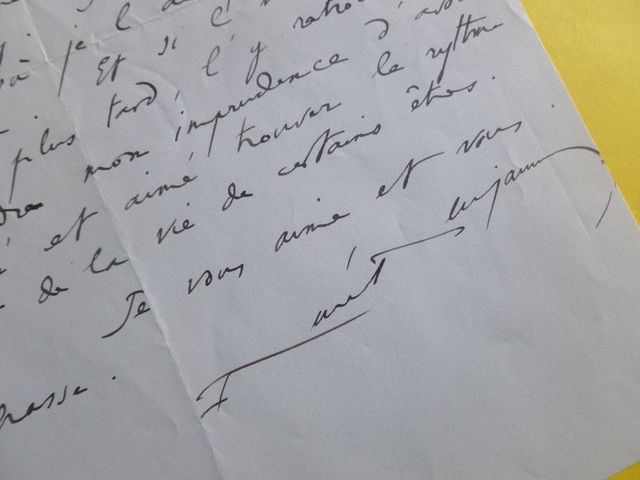 je l'a
Et si l'
plus tard, l'y retrou
mon imprudence d'avo
et aimé trouver le rythme
de la vie de certains êtres.
Je vous aime et vous